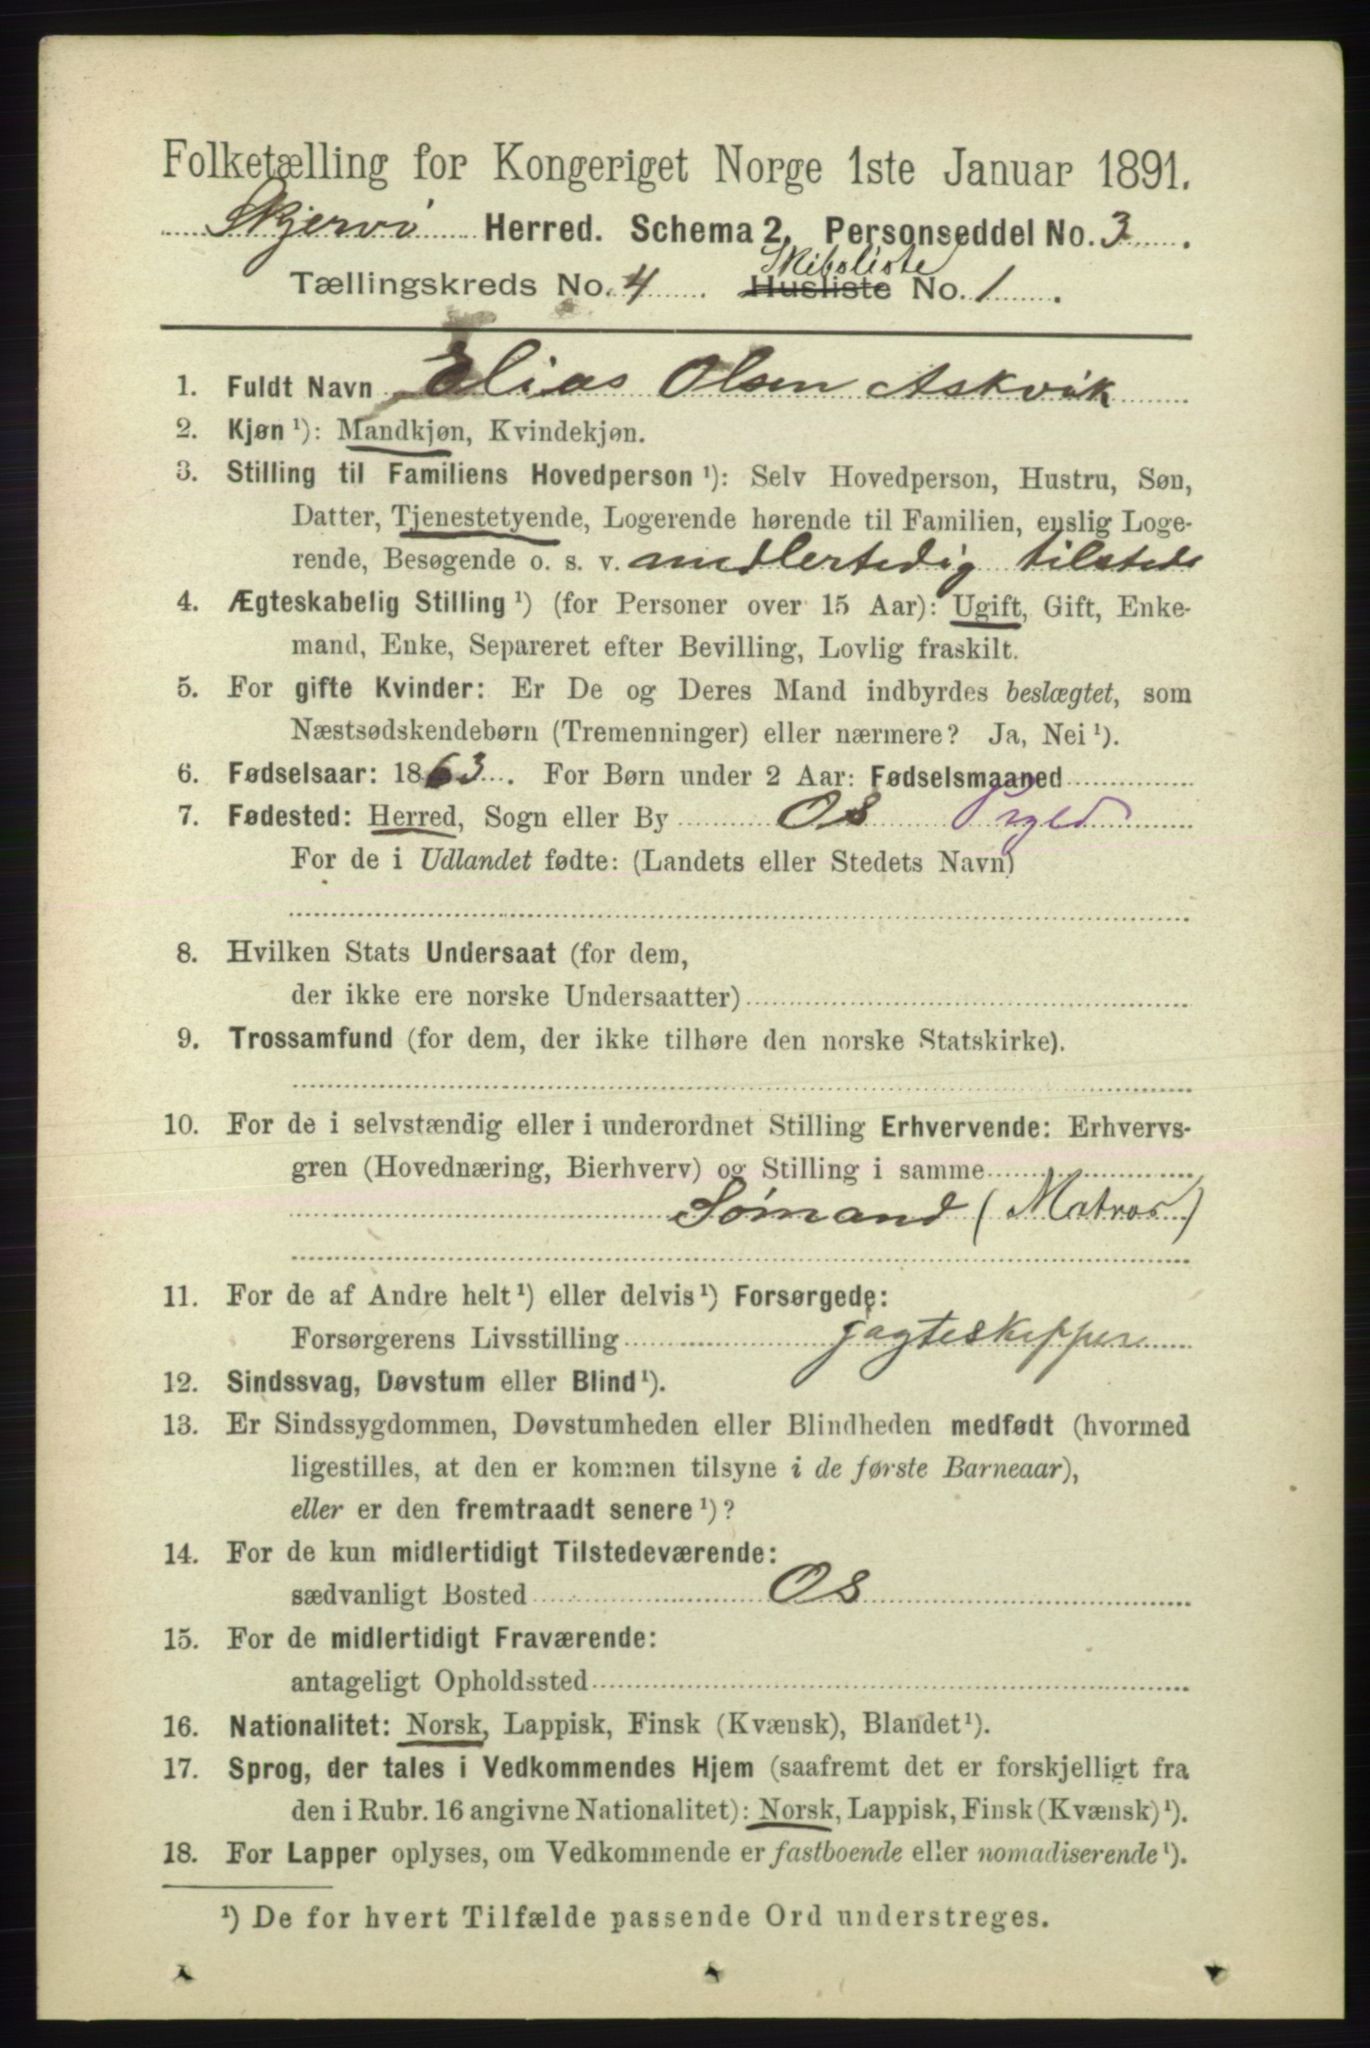 Folketælling for Kongeriget Norge 1ste Januar 1891.
Skjervø Herred. Schema 2. Personseddel No. 3.
Skibsliste
Tællingskreds No. 4 Husliste No. 1.
1. Fuldt Navn Elias Olsen Askvik
2. Kjøn ¹): Mandkjøn, Kvindekjøn.
3. Stilling til Familiens Hovedperson ¹): Selv Hovedperson, Hustru, Søn,
Datter, Tjenestetyende, Logerende hørende til Familien, enslig Loge-
rende, Besøgende o. s. v. midlertedig tilstede
4. Ægteskabelig Stilling ¹) (for Personer over 15 Aar): Ugift, Gift, Enke-
mand, Enke, Separeret efter Bevilling, Lovlig fraskilt.
5. For gifte Kvinder: Er De og Deres Mand indbyrdes beslægtet, som
Næstsødskendebørn (Tremenninger) eller nærmere? Ja, Nei ¹).
6. Fødselsaar: 1863. For Børn under 2 Aar: Fødselsmaaned
7. Fødested: Herred, Sogn eller By Os Prgld
For de i Udlandet fødte: (Landets eller Stedets Navn)
8. Hvilken Stats Undersaat (for dem,
der ikke ere norske Undersaatter)
9. Trossamfund (for dem, der ikke tilhøre den norske Statskirke).
10. For de i selvstændig eller i underordnet Stilling Erhvervende: Erhvervs-
gren (Hovednæring, Bierhverv) og Stilling i samme
Sømand (Matros)
11. For de af Andre helt ¹) eller delvis ¹) Forsørgede:
Forsørgerens Livsstilling jagteskipper
12. Sindssvag, Døvstum eller Blind ¹).
13. Er Sindssygdommen, Døvstumheden eller Blindheden medfødt (hvormed
ligestilles, at den er kommen tilsyne i de første Barneaar),
eller er den fremtraadt senere ¹)?
14. For de kun midlertidigt Tilstedeværende:
sædvanligt Bosted Os
15. For de midlertidigt Fraværende:
antageligt Opholdssted
16. Nationalitet: Norsk, Lappisk, Finsk (Kvænsk), Blandet ¹).
17. Sprog, der tales i Vedkommendes Hjem (saafremt det er forskjelligt fra
den i Rubr. 16 angivne Nationalitet): Norsk, Lappisk, Finsk (Kvænsk) ¹).
18. For Lapper oplyses, om Vedkommende er fastboende eller nomadiserende ¹).
¹) De for hvert Tilfælde passende Ord understreges.